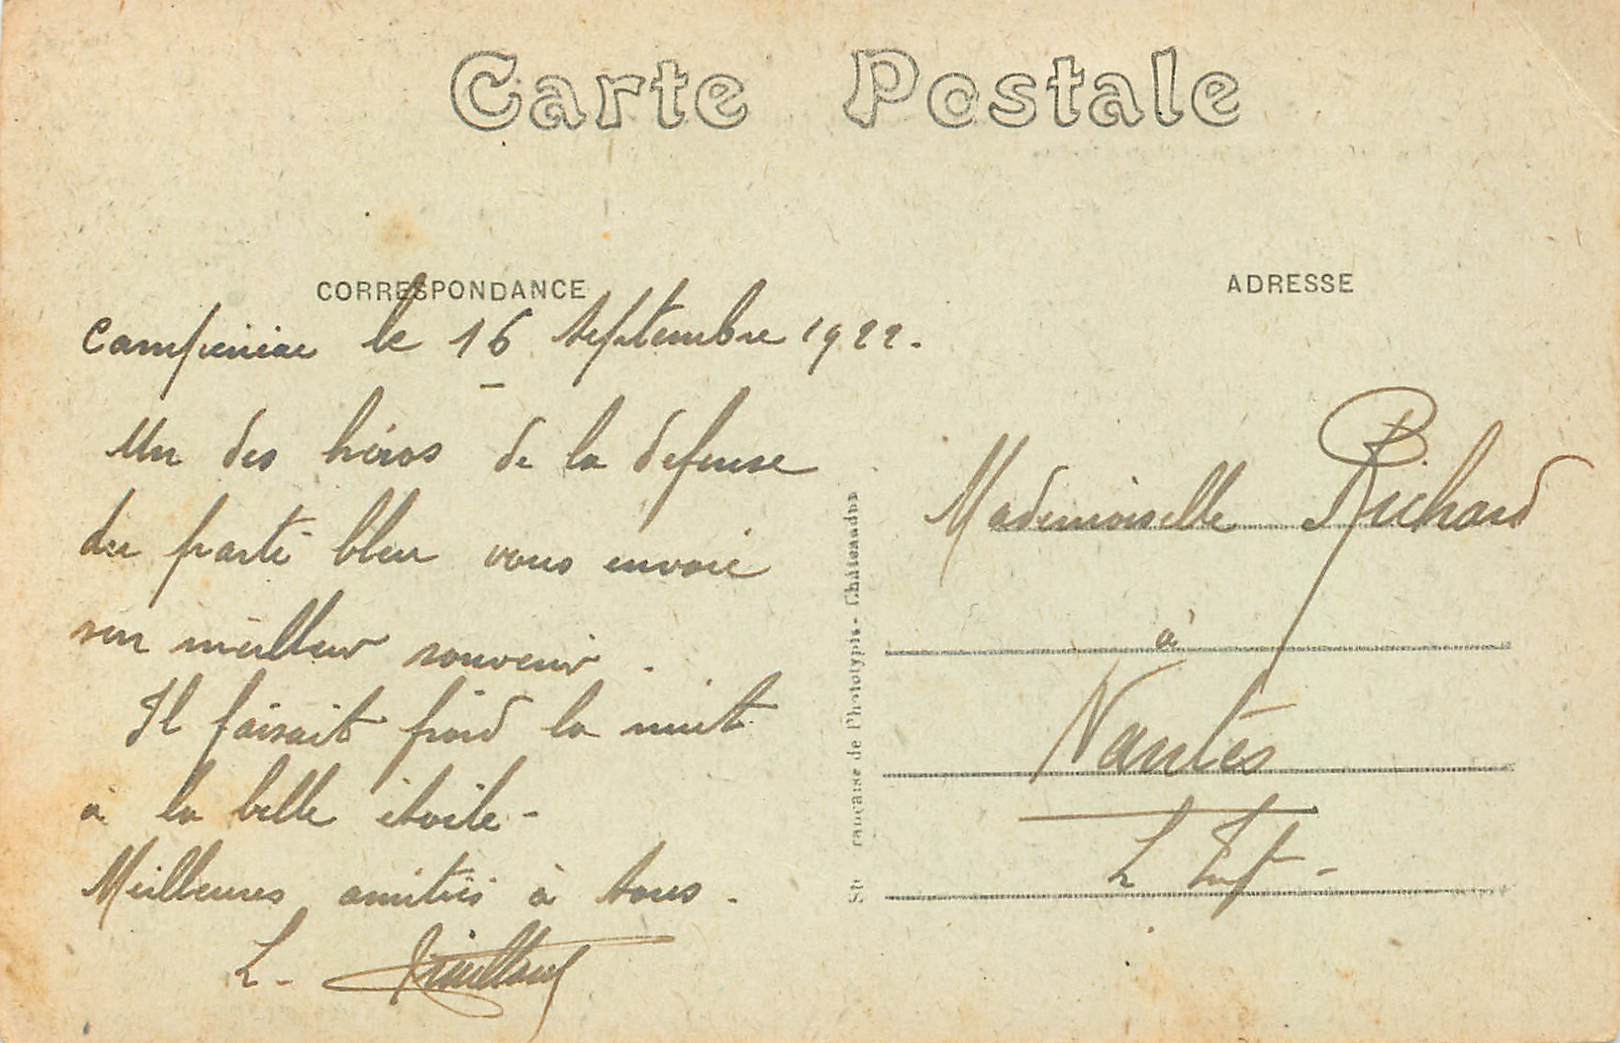 Carte Postale
CORRESPONDANCE
Campénéac le 16 Septembre 1922.
Un des héros de la defense
du parti bleu vous envoie
son meilleur souvenir.
Il faisait froid la nuit
à la belle étoile -
Meilleures amitiés à tous.
L.
ADRESSE
Mademoiselle Richard
à
Nantes
L. Inf -
française de Phototypie - Châteaudun